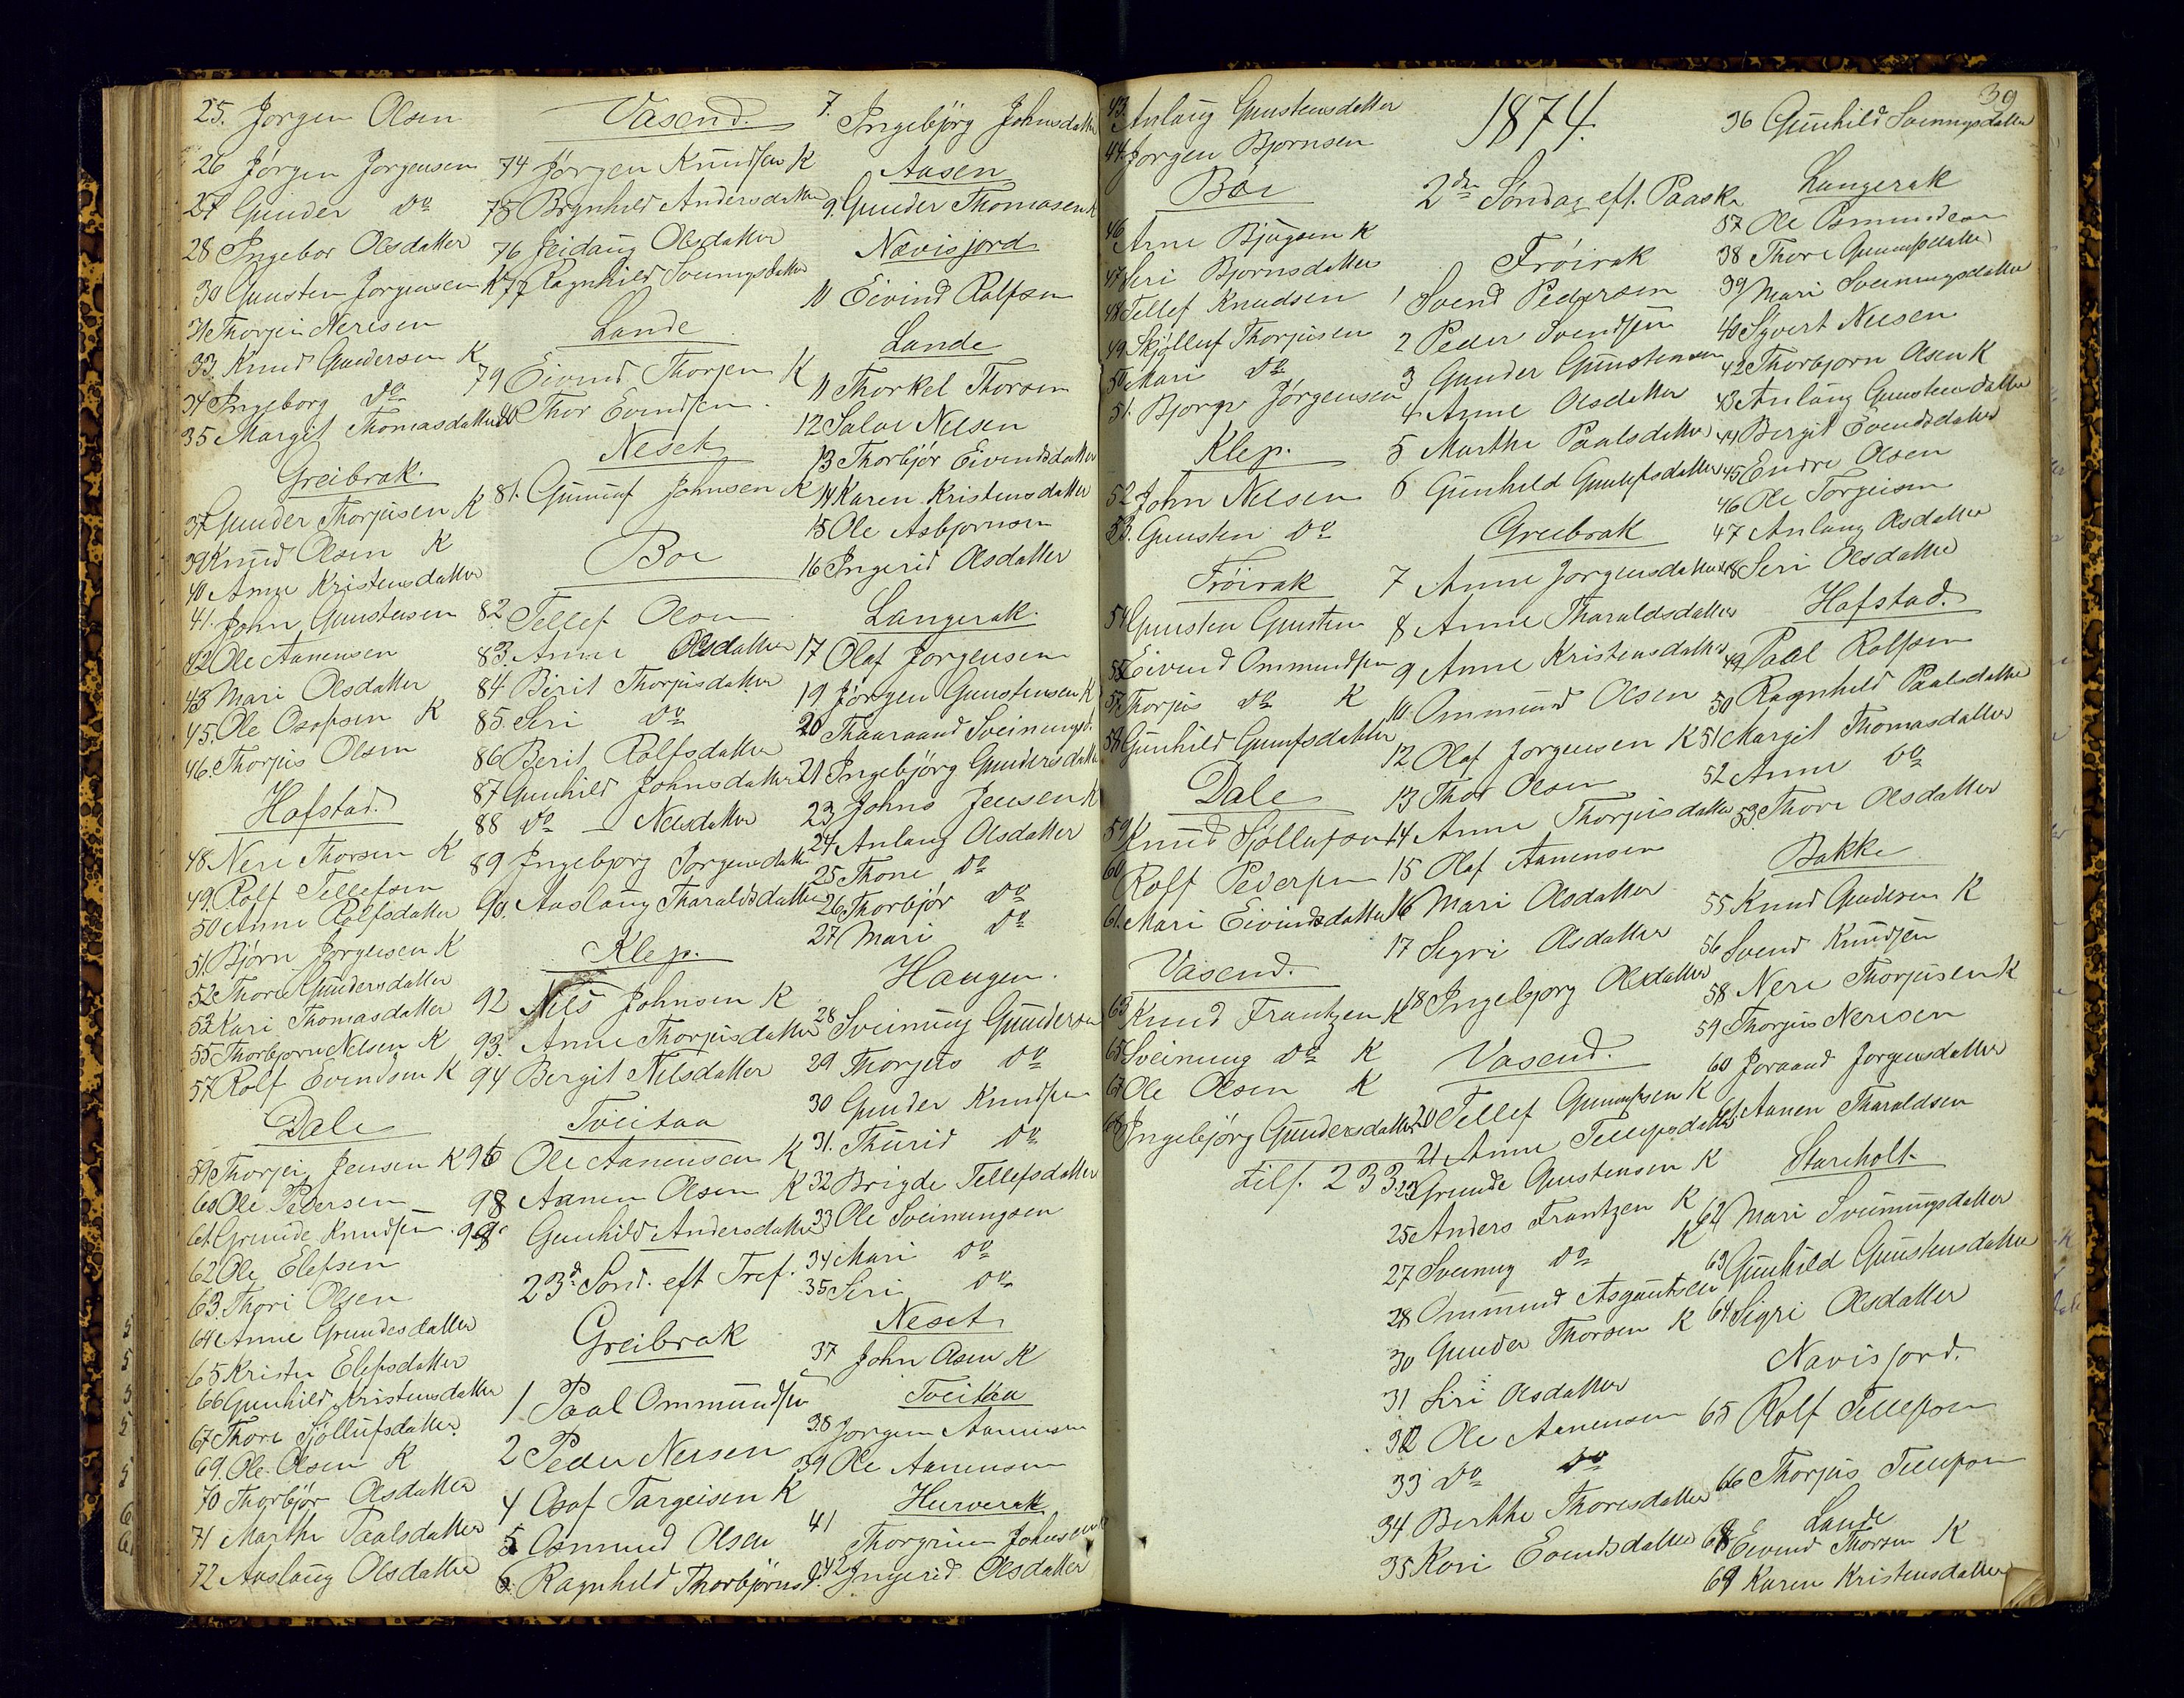 25. Jørgen Olsen
26 Jørgen Jørgensen
27 Gunder do
28 Ingebor Olsdatter
30 Gunsten Jørgensen K
31 Thorjei Nerisen
33. Knud Gundersen K
34 Ingeborg do
35 Margit Thomasdatter
Greibrak.
37 Gunder Thorjusen K
39 Knud Olsen K
40 Anne Kristensdatter
41. John Gunstensen
42 Ole Aanensen
43 Mari Olsdatter
45. Ole Osofsen K
46. Thorjus Olsen
Hofstad.
48. Neri Thorsen K
49. Rolf Tellefsen
50 Anne Rolfsdatter
51. Bjørn Jørgensen K
52 Thore Gundersdatter
53 Kari Thomasdatter
55 Thorbjørn Nelsen K
57 Rolf Evendsen K
Dale
59 Thorjei Jensen K
60 Ole Pedersen
61. Grunde Knudsen
62 Ole Elefsen
63. Thori Olsen
64 Anne Grundesdatter
65 Kristn Elefsdatter
66 Gunhild Kristensdatter
67 Thore Sjøllufsdatter
69. Ole Olsen K
70 Thorbjør Olsdatter
71 Marthe Paalsdatter
72 Aaslaug Olsdatter
Vasend.
74 Jørgen Knudsen K
75 Brynhild Andersdatter
76 Jeidaug Olsdatter
77 Ragnhild Sveinungsdatter
Lande
79 Eivind Thorsen K
80 Thor Evindsen
Neset
81. Gunnuf Johnsen K
Boe
82 Tellef Olsen
83. Anne Olsdatter
84. Berit Thorjusdatter
85. Seri do
86 Berit Rolfsdatter
87 Gunhild Johnsdatter
88 do – Nelsdatter
89 Ingebjørg Jørgensdatter
90. Aaslaug Tharaldsdatter
Klep.
92 Nels Johnsen K
93. Anne Thorjusdatter
94 Bergit Nelsdatter
Tveitaa
96 Ole Aanensen K
98 Aanen Olsen K
99 Gunhild Andersdatter
23d Sønd. eft Tref.
Greibrak
1 Paal Ommundsen
2 Peder Nersen
4 Osof Targeisen K
5 Osmund Olsen
6. Ragnhild Thorbjørnsd.
7. Ingebjørg Johnsdatter
Aasen
9. Gunder Thomasen K
Nævisjord
10 Eivind Rolfsen
Lande
11 Thorkel Thorsen
12 Salve Nelsen
13 Thorbjør Eivindsdatter
14 Karen Kristensdatter
15 Ole Asbjørnsen
16 Ingerid Olsdatter
Langerak.
17 Olaf Jørgensen
19 Jørgen Gunstensen K
20 Thaaraand Sveinungsd.
21 Ingebjørg Gundersdatter
23 Johns Jensen K
24 Anlaug Olsdatter
25 Thone do
26 Thorbjør do
27 Mari do
Haugen.
28 Sveinung Gundersen
29 Thorjus do
30 Gunder Knudsen
31. Thurid do
32 Brigde Tellefsdatter
33 Ole Sveinungsen
34 Mari do
35 Seri do
Neset
37 John Olsen K
Tveitaa
38 Jørgen Aanensen
39 Ole Aanensen
Hurverak
41 Thorgrim Johnsen K
42 Ingerid Olsdatter
43. Anlaug Gunstensdatter
44. Jørgen Bjørnsen
Boe
46 Arne Bjugsen K
47 Seri Bjørnsdatter
48 Tellef Knudsen
49 Skjølluf Thorjusen
50 Mari do
51. Bjorgv Jørgensen
Klep.
52 John Nelsen
53. Gunsten do
Frøirak
54 Gunsten Gunsten
55 Eivend Ommundsen
57 Thorjus do K
58 Gunhild Gunufsdatter
Dale
59 Knud Sjøllufsen
60 Rolf Pedersen
61. Mari Eivindsdatter
Vasend.
63 Knud Frantzen K
65 Sveinung do K
67 Ole Olsen K
68 Ingebjørg Gundersdatter
tils. 233.
1874.
2den Søndag eft. Paaske
Frøirak
1 Svend Pedersen
2 Peder Svendsen
3 Gunder Gunstensen
4 Anne Olsdatter
5 Marthe Paalsdatter
6 Gunhild Gunufsdatter
Greibrak
7 Anne Jorgensdatter
8 Anne Tharaldsdatter
9 Anne Kristensdatter
10. Ommund Olsen
12 Olaf Jorgensen K
13 Thor Olsen
14 Anne Thorjusdatter
15 Olaf Aanensen
16 Mari Olsdatter
17 Segri Olsdatter
18 Ingebjørg Olsdatter
Vasend.
20 Tellef Gunufsen K
21 Anne Tellefsdatter
23 Grunde Gunstensen K
25 Anders Frantzen K
27 Sveinung do K
28 Ommund Asgautsen
30 Gunder Thorsen K
31 Siri Olsdatter
32 Ole Aanensen
33 do do
34 Berthe Thoresdatter
35 Kari Evendsdatter
39
36 Gunhild Sveinungsdatter
Langerak
37 Ole Osmundsen
38 Thore Gunnufsdatter
39 Mari Sveinungsdatter
40 Syvert Nelsen
42 Thorbjørn Olsen K
43 Anlaug Gunstensdatter
44 Bergit Evendsdatter
45 Endre Olsen
46 Ole Torgeisen
47 Anlaug Olsdatter
48 Seri Olsdatter
Hofstad.
49 Paal Rolfsen
50 Ragnhild Paalsdatter
51 Margit Thomasdatter
52 Anne do
53 Thore Olsdatter
Bakke
55 Knud Gundersen K
56 Svend Knudsen
58 Neri Thorjusen K
59 Thorjus Nerisen
60 Joraand Jorgensdatter
61. Aanen Tharaldsen
Stareholt
62 Mari Sveinungsdatter
63 Gunhild Gunstensdatter
64 Sigri Olsdatter
Navisjord.
65 Rolf Tellefsen
66 Thorjus Tellefsen
Lande
68 Eivind Thorsen K
69 Karen Kristensdatter